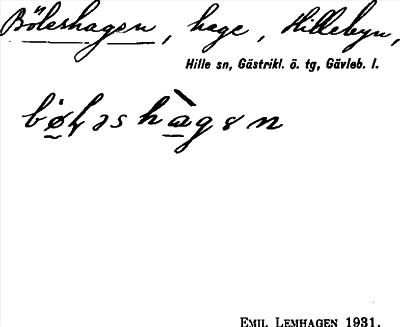 Böleshagen, hage, Hillebyn,
Hille sn, Gästrikl. ö. tg, Gävleb. l.
bø̀ɬəshàgɘn
EMIL LEMHAGEN 1931.